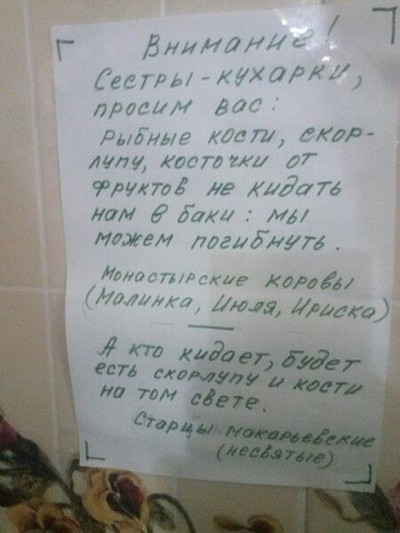 Внимание!
Сестры-кухарки,
просим вас:
рыбные кости, скор-
лупу, косточки от
фруктов не кидать
нам в баки: мы
можем погибнуть.
Монастырские коровы
(Малинка, Июля, Ириска)
А кто кидает, будет
есть скорлупу и кости
на том свете.
Старцы макарьевские
(несвятые)